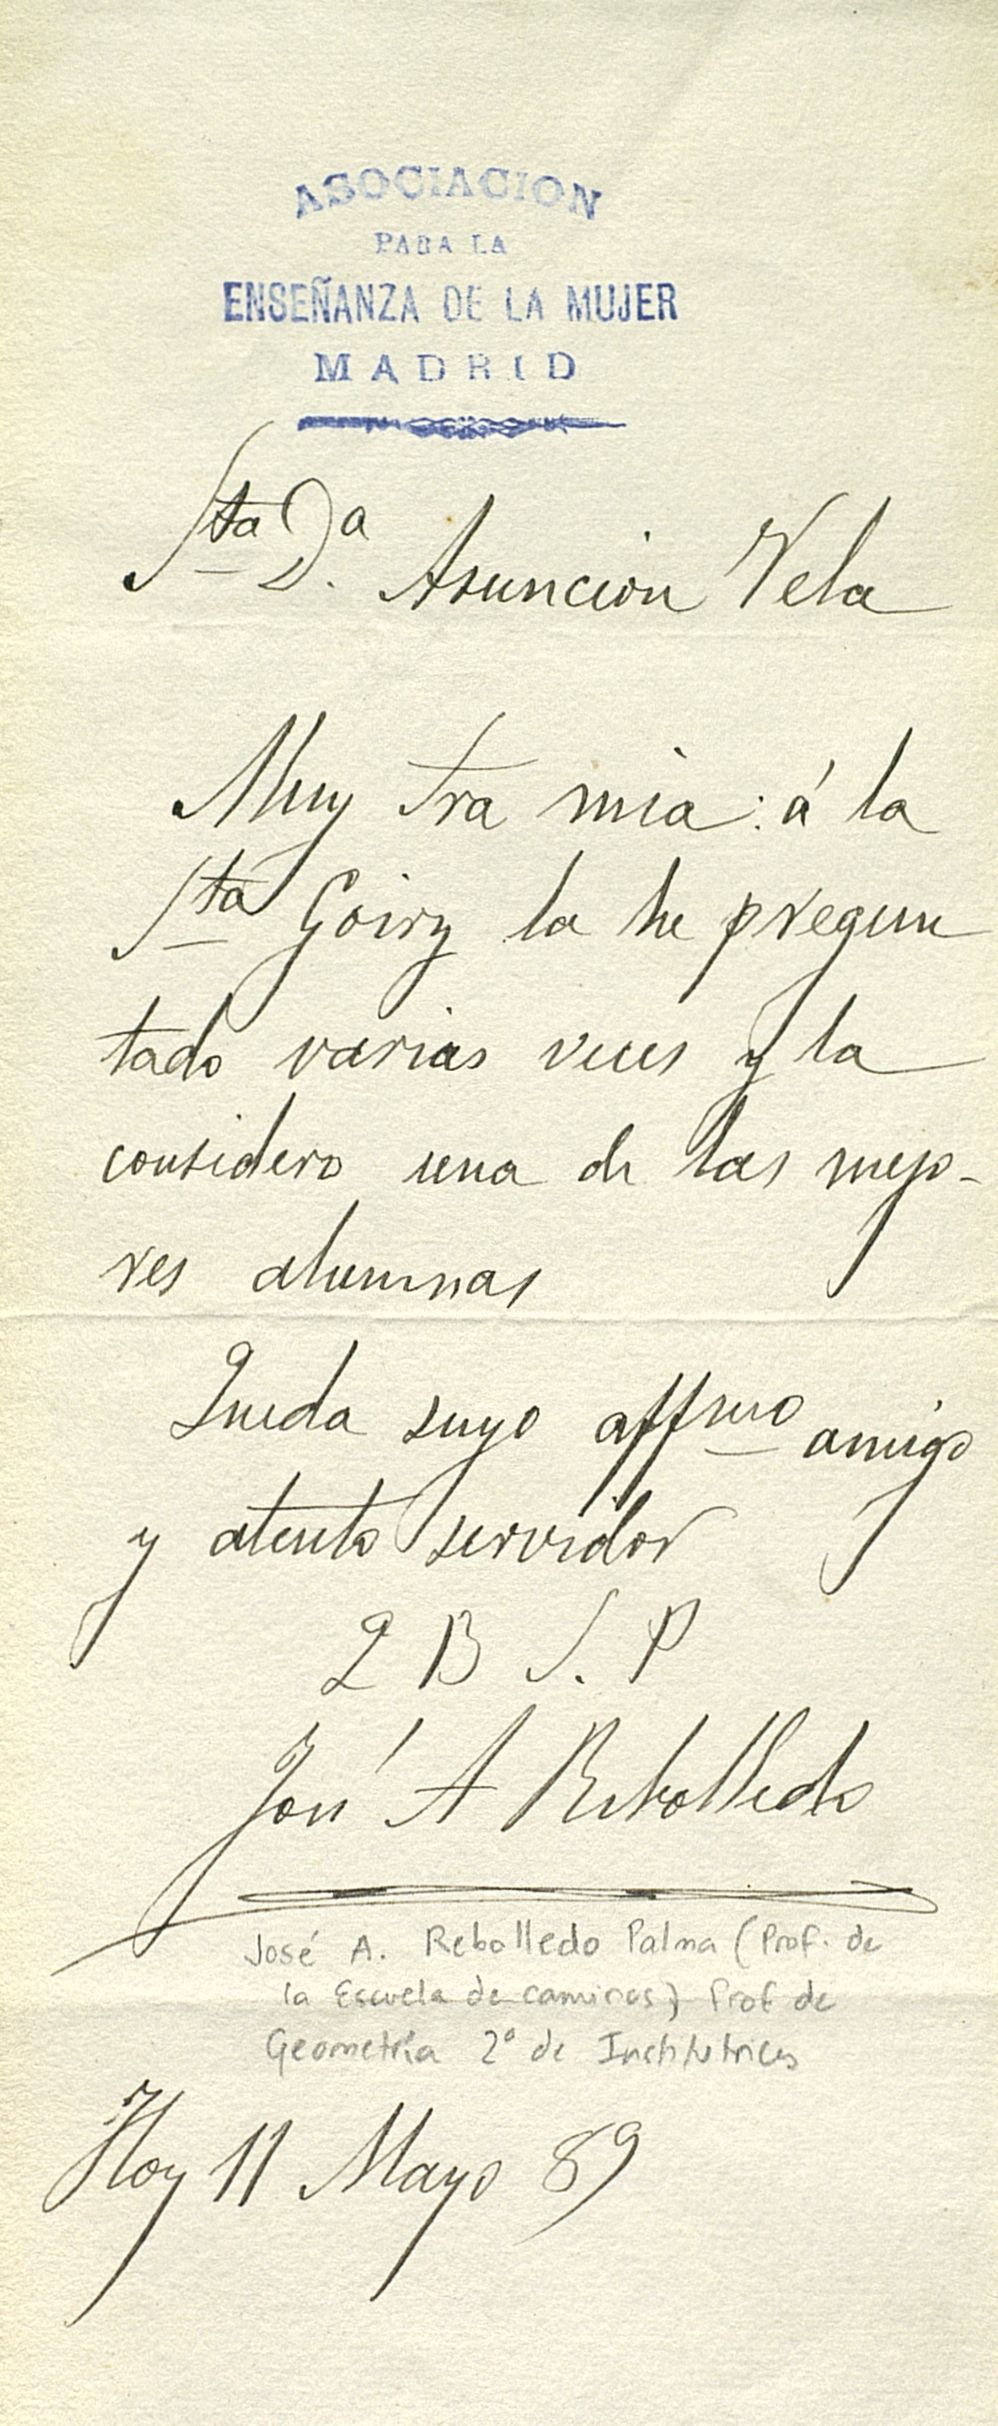 ASOCIACION
PARA LA
ENSEÑANZA DE LA MUJER
MADRID
Sta Da. Asuncion Vela
Muy Sra mia: á la
Sta Goiry la he pregun
tado varias veces y la
considero una de las mejo-
res alumnas
Queda suyo affmo amigo
y atento servidor
Q B S. P
José A Rebolledo
José A. Rebolledo Palma (Prof. de
la Escuela de caminos) Prof de
Geometría 2º de Institutrices
Hoy 11 Mayo 89